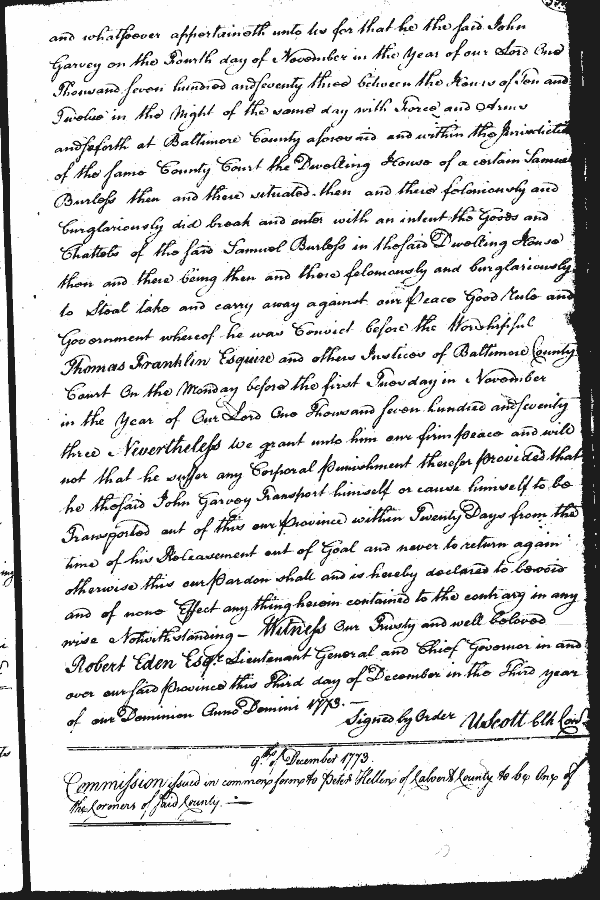 and whatsoever appertaineth unto us for that he the said John
Garvey on the Fourth day of November in the Year of our Lord One
Thousand seven hundred and seventy three between the Hours of Ten and
Twelve in the Night of the same day with Force and Arms
and so forth at Baltimore County aforesaid and within the Jurisdiction
of the same County Court the Dwelling House of a certain Samuel
Burless then and there situated then and there feloniously and
burglariously did break and enter with an intent the Goods and
Chattels of the said Samuel Burless in the said Dwelling House
then and there being then and there feloniously and burglariously
to Steal take and carry away against our Peace Good Rule and
Government whereof he was Convict before the Worshipful
Thomas Franklin Esquire and others Justices of Baltimore County
Court On the Monday before the first Tuesday in November
in the Year of Our Lord One Thousand seven hundred and seventy
three Nevertheless we grant unto him our firm Peace and will
not that he suffer any Corporal Punishment therefor Provided that
he the said John Garvey Transport himself or cause himself to be
Transported out of this our Province within Twenty Days from the
time of his Releasement out of Goal and never to return again
otherwise this our Pardon shall and is hereby declared to be void
and of none Effect any thing herein contained to the contrary in any
wise Notwithstanding – Witness Our Trusty and well beloved
Robert Eden Esqr. Lieutenant General and Chief Governor in and
over our said Province this Third day of December in the Third year
of our Dominion Anno Domini 1773. –
Signed by Order U Scott Clk Can
9th of December 1773.
Commission issued in common form to Peter Hellen of Calvert County to be One of
the Coroners of said County. —